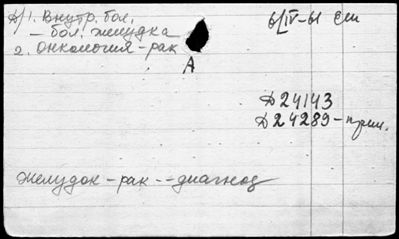 Д/1. Внутр. бол.
– бол. желудка
2. Онкология – рак
А
6/IV-61
Д 24143
Д 24289 – прим.
Желудок – рак -- диагноз